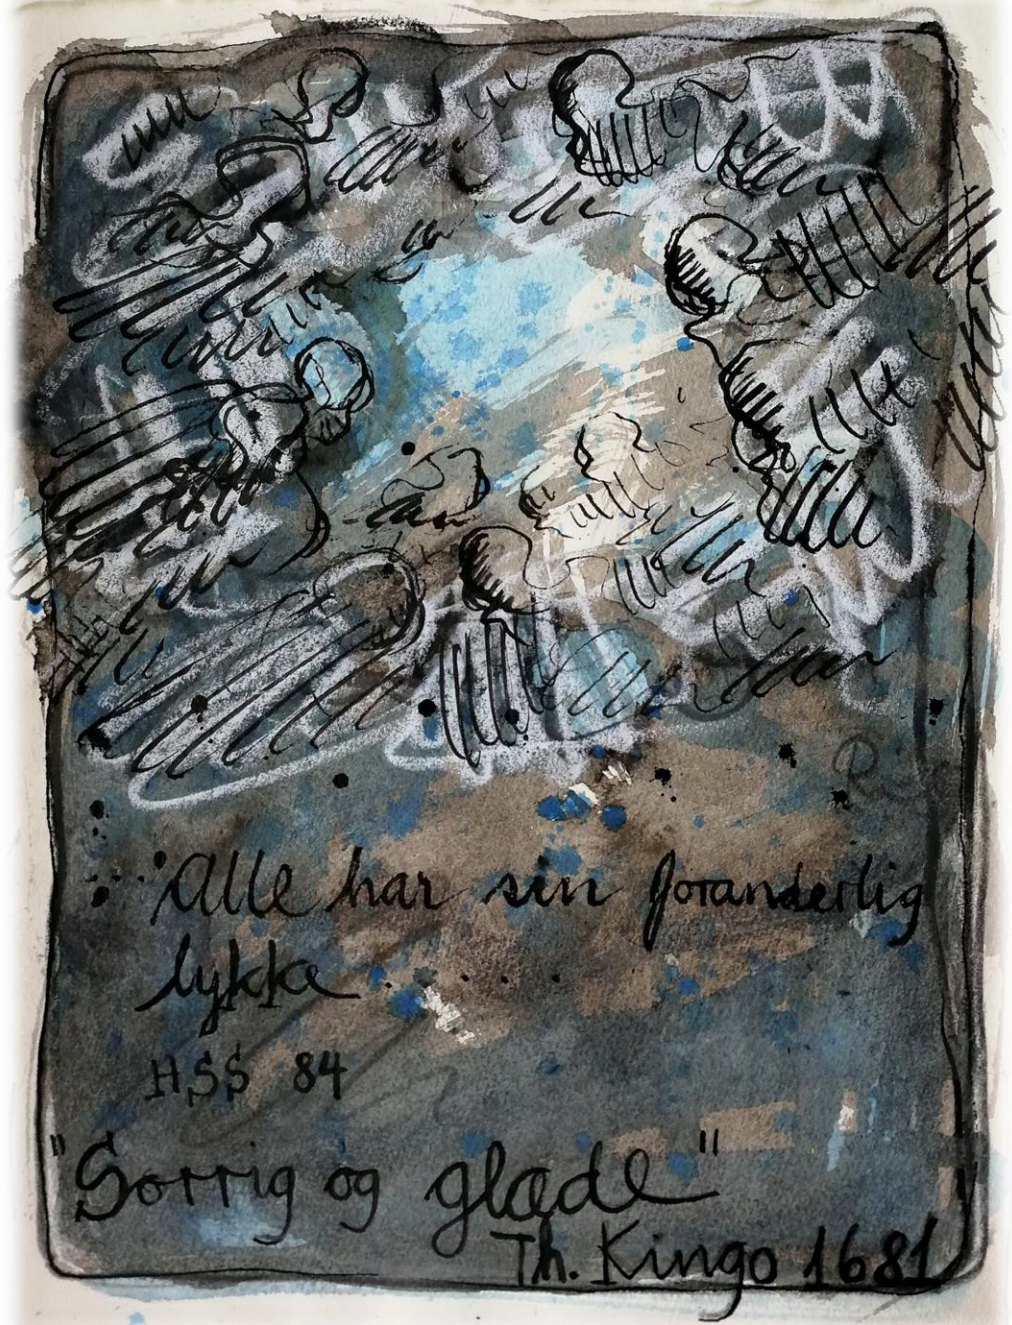 Alle har sin foranderlig
lykke . . . .
HSS 84
"Sorrig og glæde"
Th. Kingo 1681